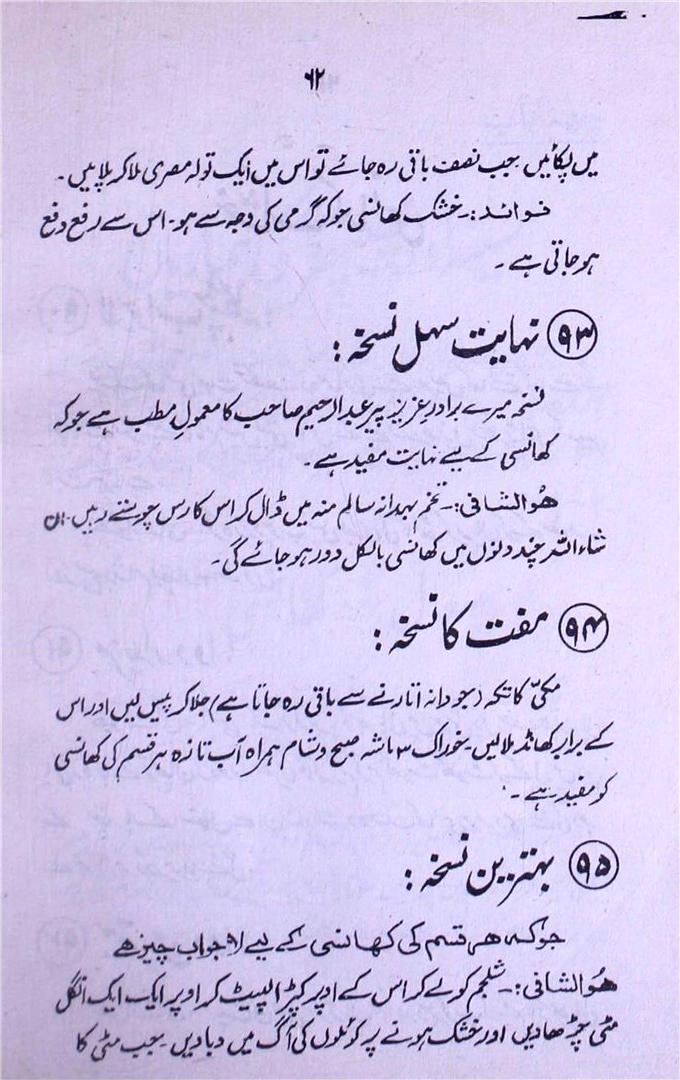 ۶۲
میں پکائیں جب نصف باقی رہ جائے تو اس میں ایک تولہ مصری ملا کر پلائیں۔
فوائد:۔ خشک کھانسی جو کہ گرمی کی وجہ سے ہو۔ اس سے رفع دفع
ہو جاتی ہے۔
۹۳ نہایت سہل نسخہ:
نسخہ میرے برادر عزیز پیر عبد الرحیم صاحب کا معمولِ مطب ہے جو کہ
کھانسی کے لیے نہایت مفید ہے۔
ھُوالشافی:۔ تخم بہدانہ سالم منہ میں ڈال کر اس کا رس چوستے رہیں۔ ان
شاء اللہ چند دنوں میں کھانسی بالکل دور ہو جائے گی۔
۹۴ مفت کا نسخہ:
مکیّ کا تکہ (جو دانہ اتارنے سے باقی رہ جاتا ہے) جلا کر پیس لیں اور اس
کے برابر کھانڈ ملالیں۔ خوراک ۳ ماشہ صبح و شام ہمراہ آب تازہ ہر قسم کی کھانسی
کو مفید ہے۔
۹۵ بہترین نسخہ:
جو کہ ھر قسم کی کھانسی کے لیے لاجواب چیز ھے
ھُوالشافی:۔ شلجم کو لے کر اس کے اوپر کپڑا لپیٹ کر اوپر ایک ایک انگل
مٹی چڑھا دیں اور خشک ہونے پر کوئلوں کی آگ میں دبا دیں۔ جب مٹی کا